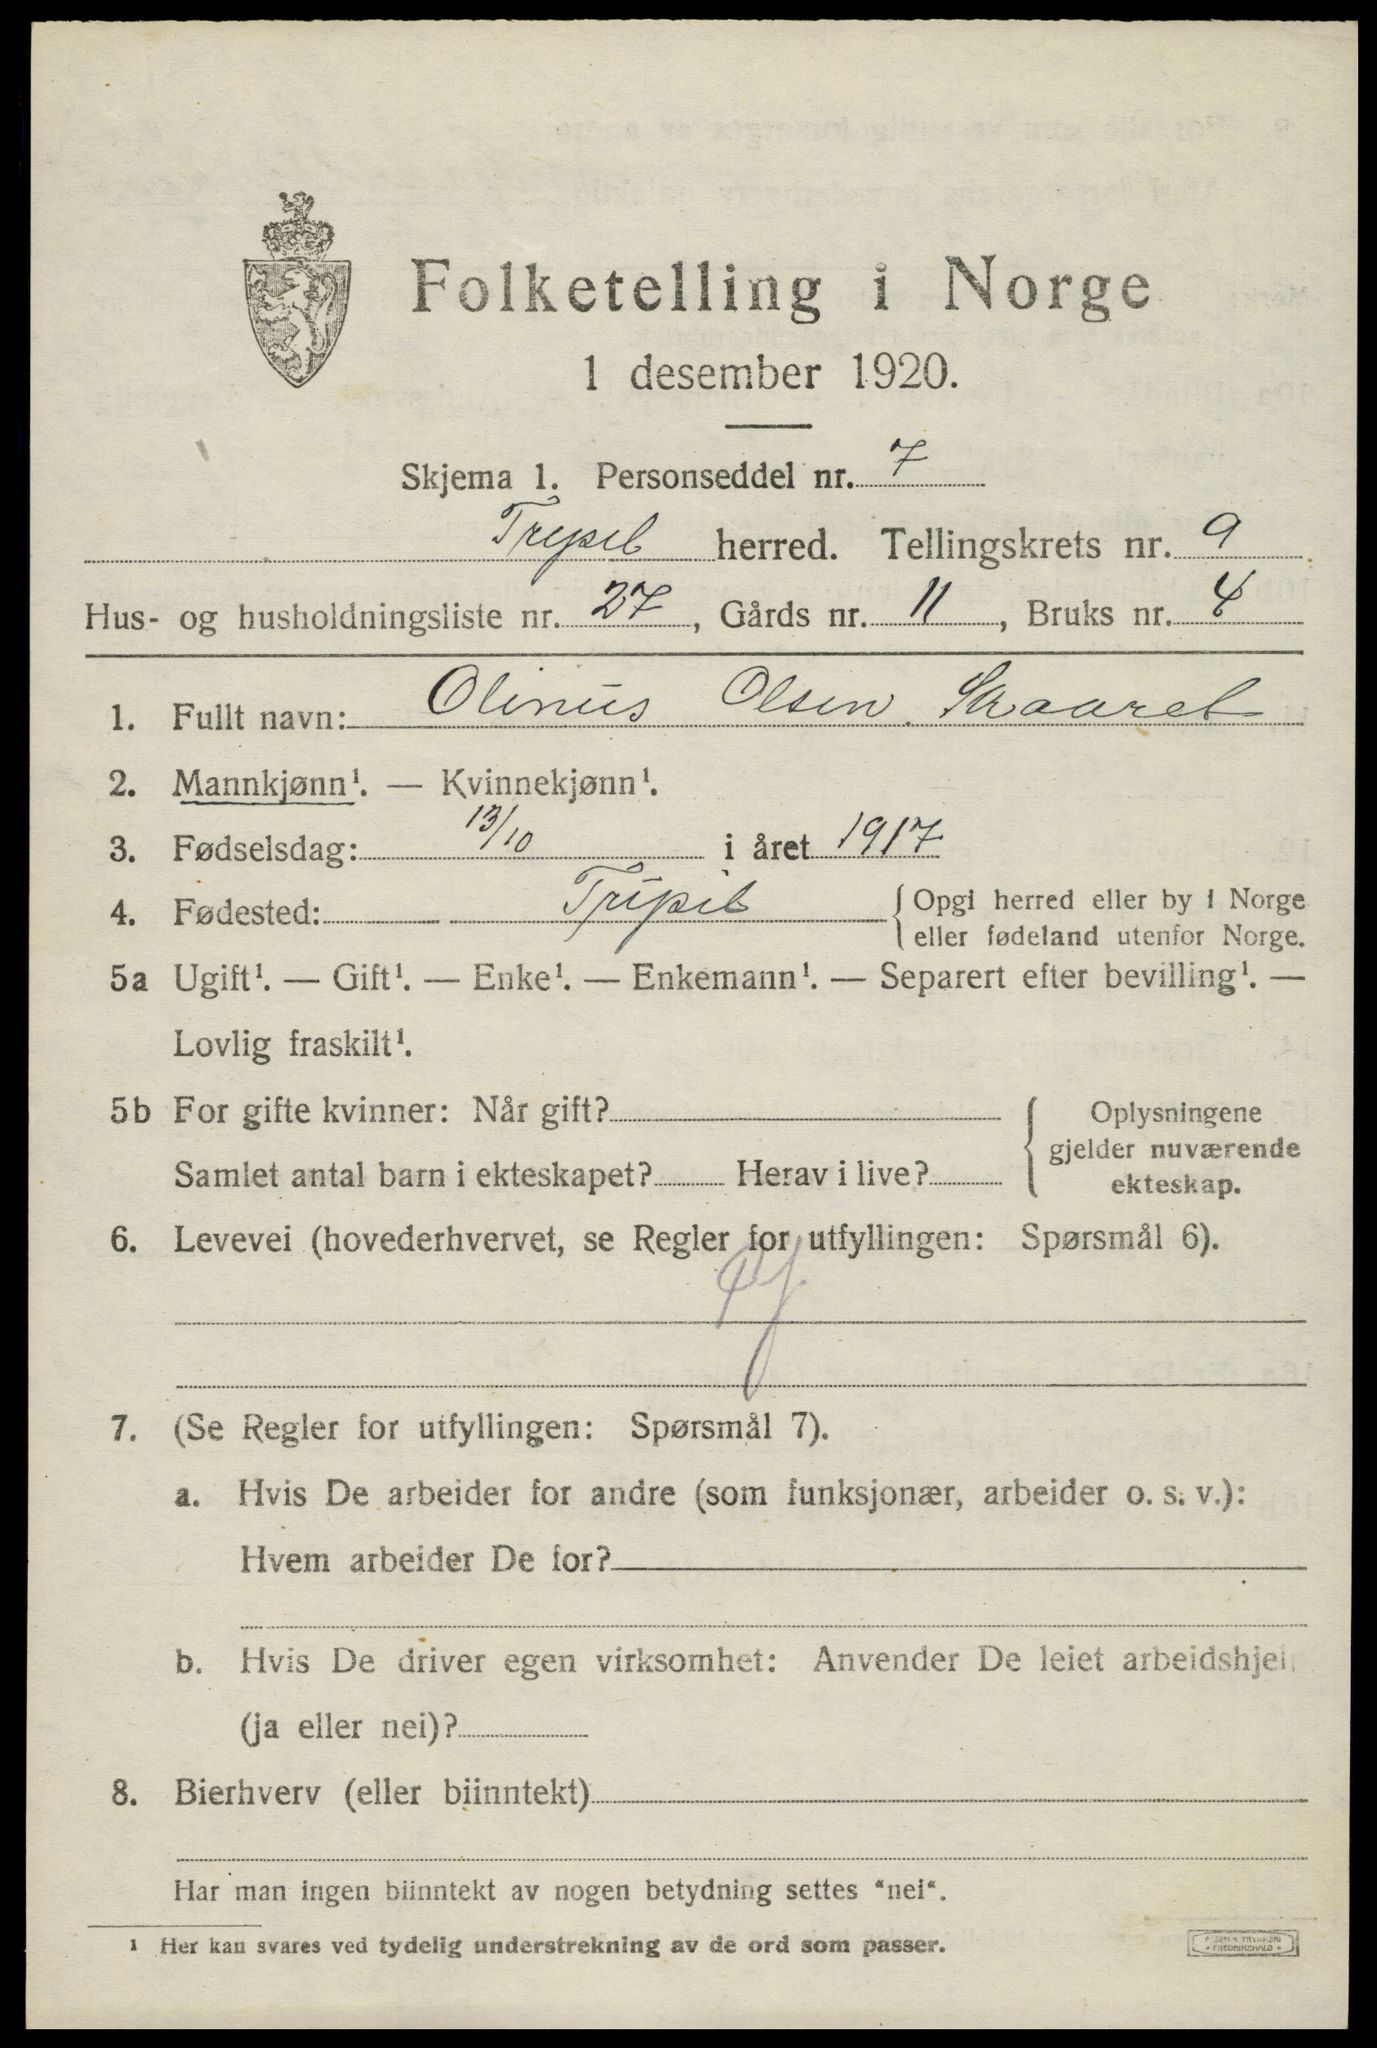 Folketelling i Norge
1 desember 1920.
Skjema 1. Personseddel nr. 7
Trysil herred. Tellingskrets nr. 9
Hus- og husholdningsliste nr. 27, Gårds nr. 11, Bruks nr. 4
1. Fullt navn: Olinus Olsen Skaaret
2. Mannkjønn¹. — Kvinnekjønn¹.
3. Fødselsdag: 13/10 i året 1917
4. Fødested: Trysil { Opgi herred eller by i Norge
eller fødeland utenfor Norge.
5a Ugift¹. — Gift¹. — Enke¹. — Enkemann¹. — Separert efter bevilling¹. —
Lovlig fraskilt¹.
5b For gifte kvinner: Når gift? { Oplysningene
gjelder nuværende
Samlet antal barn i ekteskapet? Herav i live? ekteskap.
6. Levevei (hovederhvervet, se Regler for utfyllingen: Spørsmål 6).
7. (Se Regler for utfyllingen: Spørsmål 7).
a. Hvis De arbeider for andre (som funksjonær, arbeider o. s. v.):
Hvem arbeider De for?
b. Hvis De driver egen virksomhet: Anvender De leiet arbeidshjel
(ja eller nei)?
8. Bierhverv (eller biinntekt)
Har man ingen biinntekt av nogen betydning settes "nei".
¹ Her kan svares ved tydelig understrekning av de ord som passer.